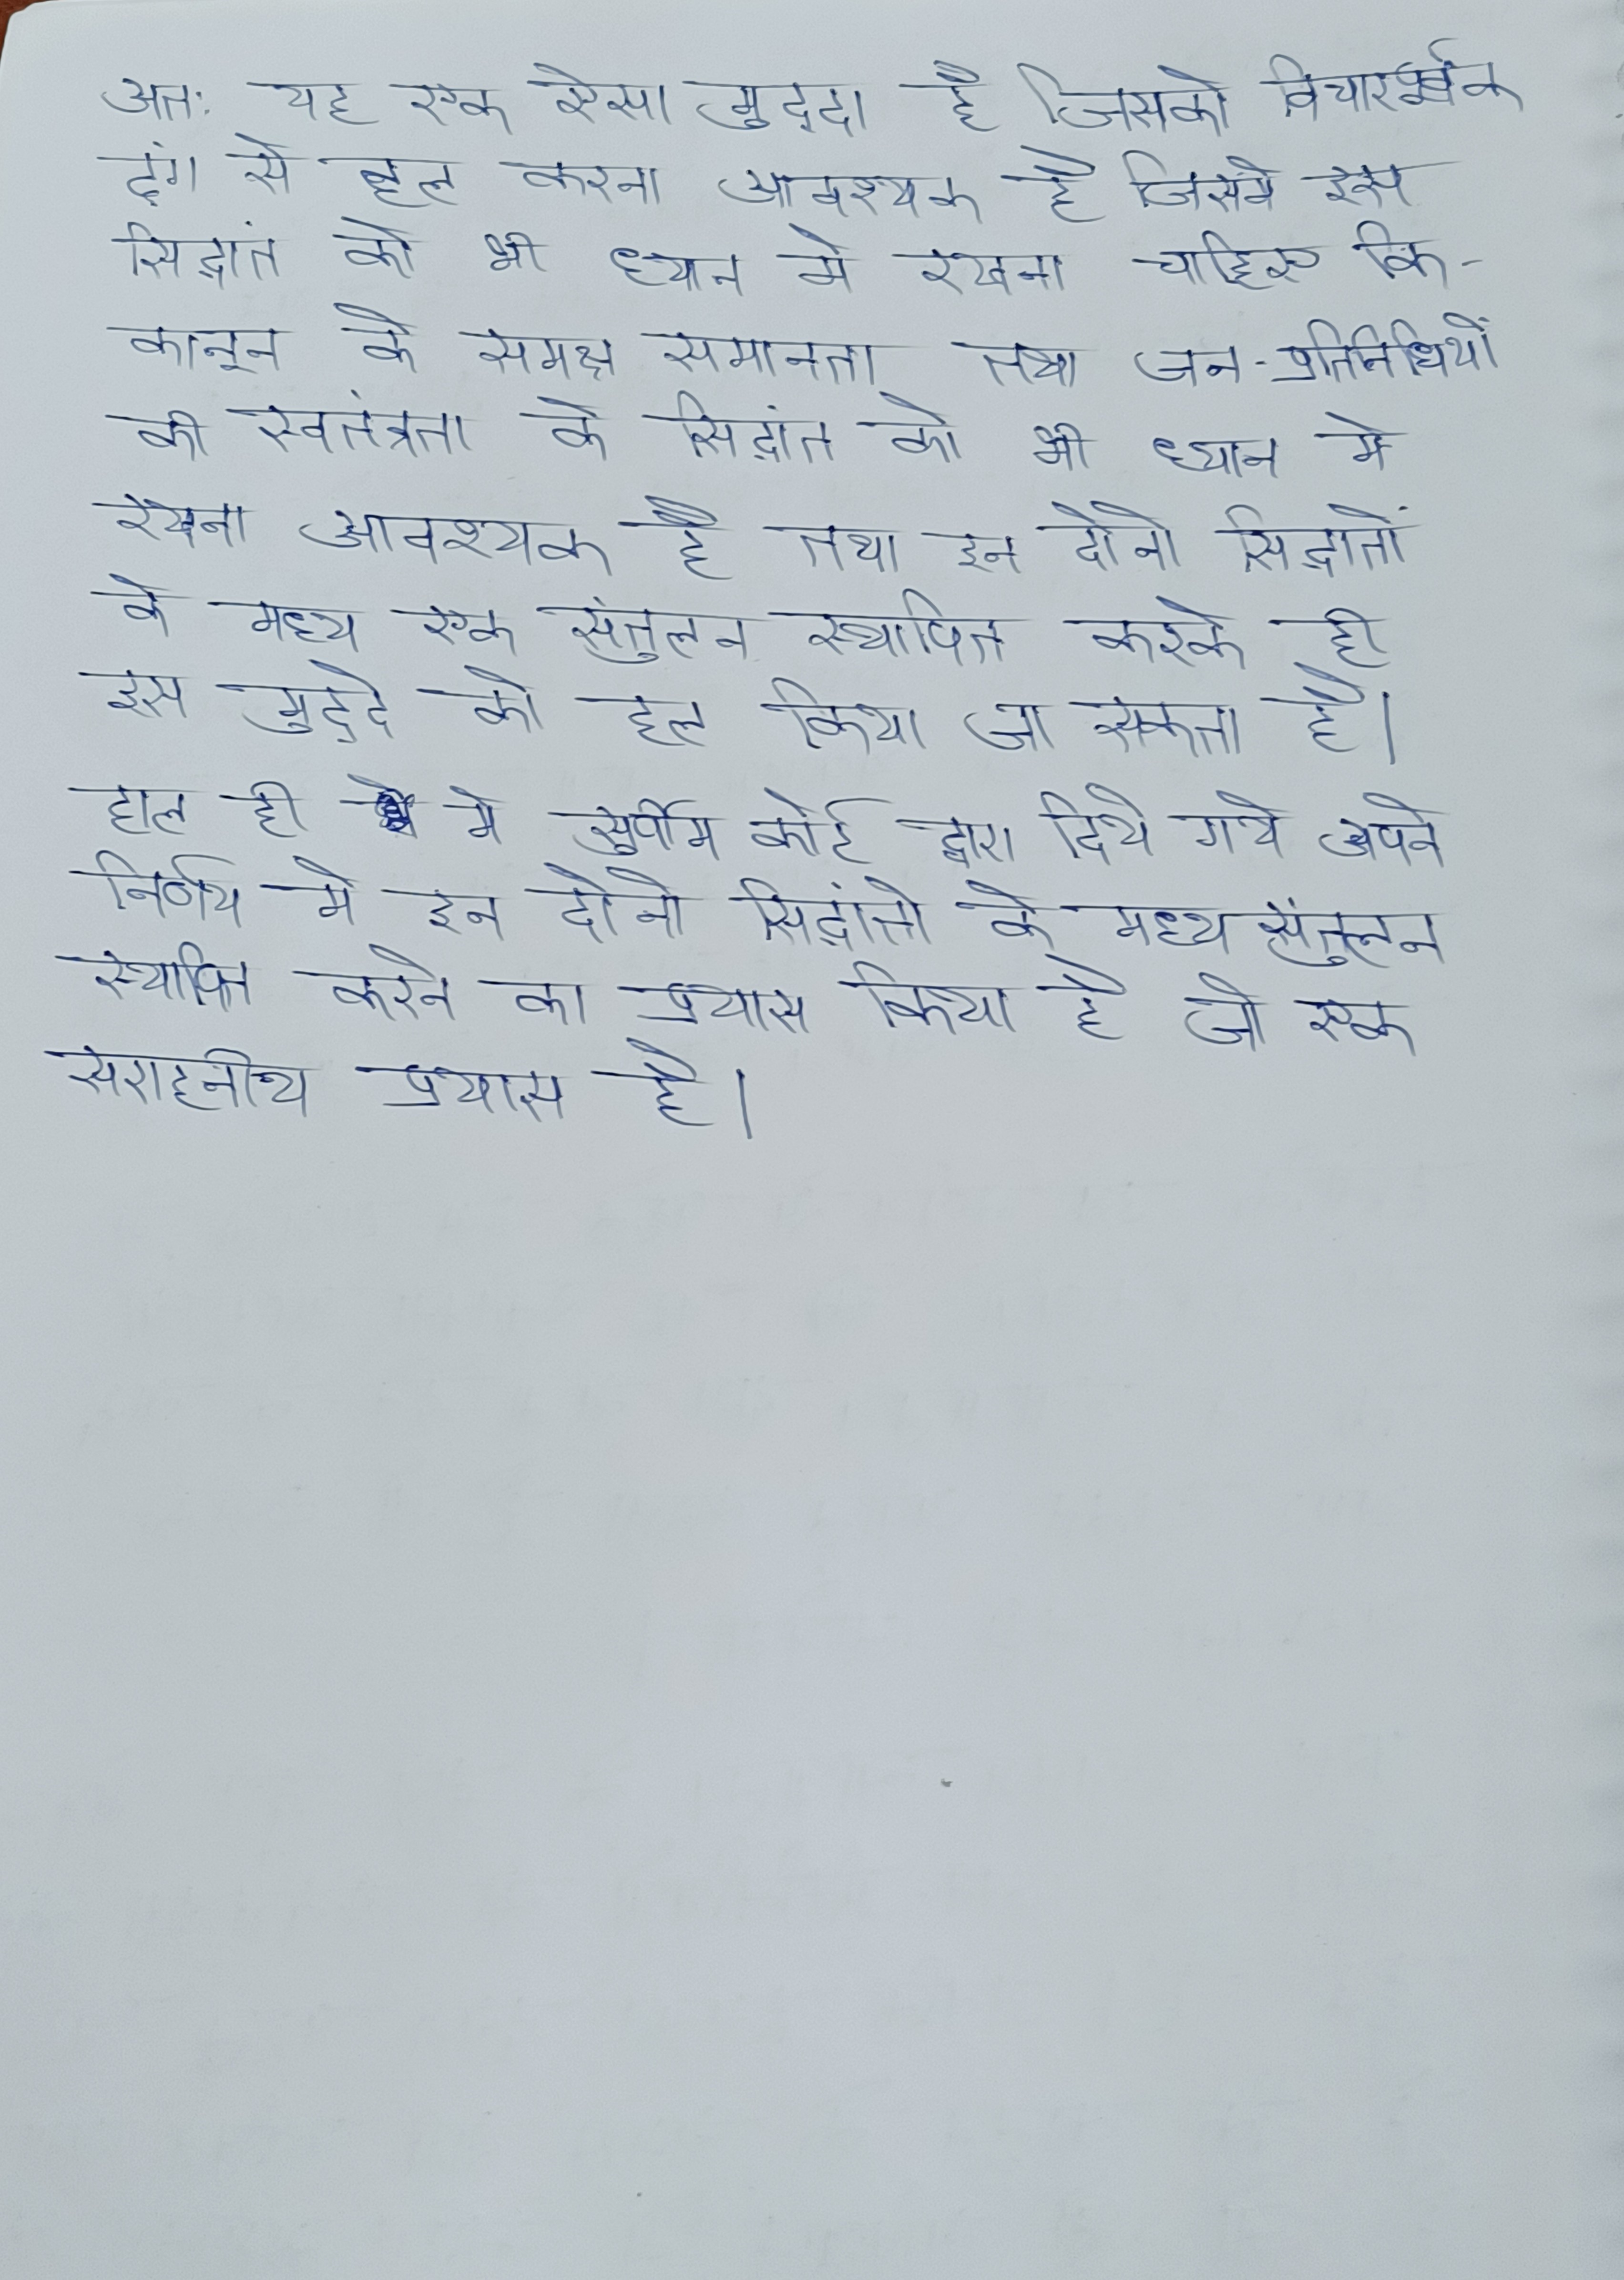 अतः यह एक ऐसा मुद्दा है जिसको विचारपूर्वक
ढंग से हल करना आवश्यक है जिसमे इस
सिद्धांत को भी ध्यान मे रखना चाहिए कि-
कानून के समक्ष समानता तथा जन-प्रतिनिधियों
की स्वतंत्रता के सिद्धांत को भी ध्यान मे
रखना आवश्यक है तथा इन दोनो सिद्धांतों
के मध्य एक संतुलन स्थापित करके ही
इस मुद्दे को हल किया जा सकता है।
हाल ही मे सुप्रीम कोर्ट द्वारा दिये गये अपने
निर्णय मे इन दोनो सिद्धांतो के मध्य संतुलन
स्थापित करने का प्रयास किया है जो एक
सराहनीय प्रयास है।